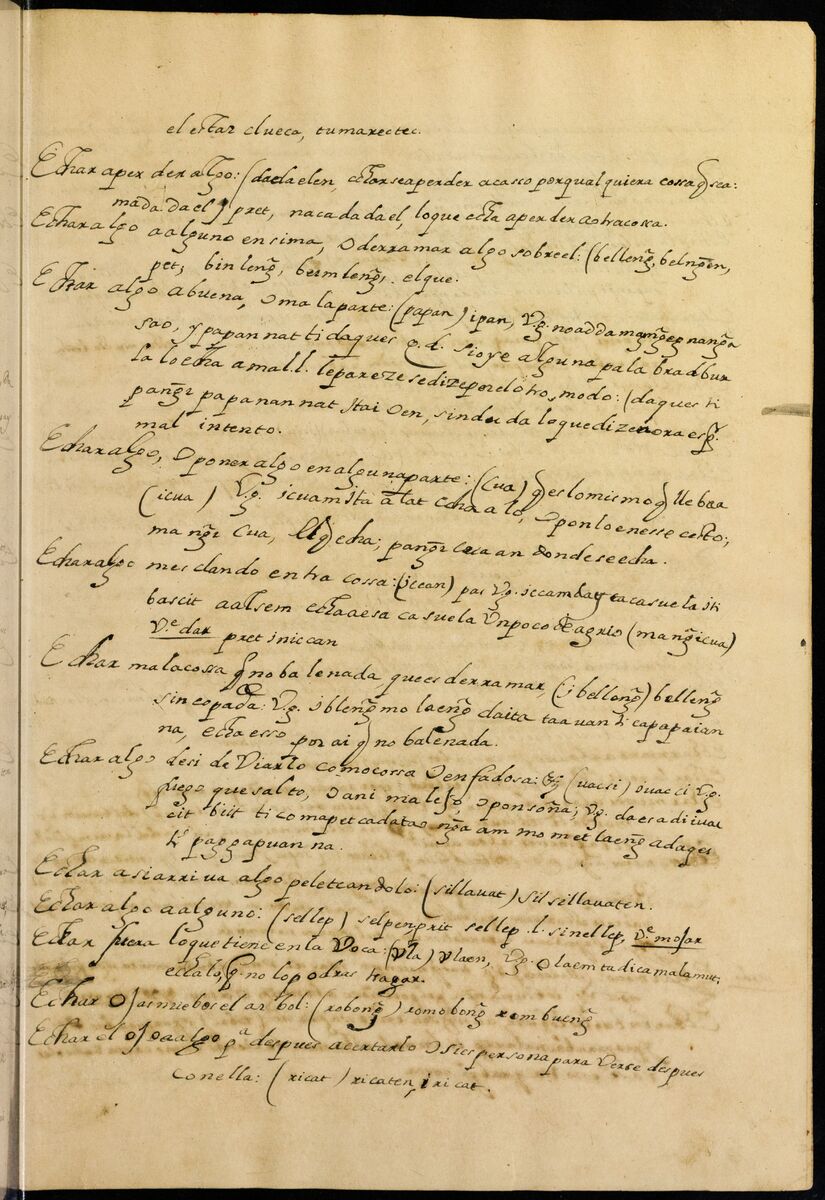 el estar clueca, tumarectec.
Echar aper der algo: (dadaelen, echarse aperder acasso porqual quiera cossa q̃ sea:
mada dael y pret, nacadadael, loque echa aperder aotra cossa.
Echar algo aalguno ensima, o derramar algo sobreel: (belleng̃, belng̃en,
pet, binleng̃, bumleng̃, el que.
Echar algo abuena, o mala parte: (papan) ipan, V.g. noadda mang̃eg nang̃a
sao, y papan nat ti daques q.d. si oye alguna palabra dbur
la loecha a mal l. le pareze se dize por el otro modo: (daques ti
pang̃i papanan nat Itai Oen, sin duda lo que dizen ora es p.r
mal intento.
Echar algo, o poner algo en alguna parte: (cua) q̃ es lo mismo q̃ llebaa
(icua) V.g. icuam ita alat echa alo, o ponlo en esse cesto;
mang̃i cua, el q̃ echa; pang̃i cuaan donde se echa.
Echar algo mesclando en tra cossa: (iccan) pas V.g. iccam bassit
bascit aalsem echa aesa casuela Un poco de agrio (mang̃icua)
V.e dar pret iniccan
Echar mala cossa q̃ no ba lenada que es derramar, (ibelleng̃) belleng̃
sincopada: V.g. ibleng̃ mo laeng̃ daita ta auan ti capapaian
na, echa esso por ai q̃ no ba lenada.
Echar algo desi de Viarlo como cossa o enfadosa: (uacsi) iuacci V.g.
fuego que salto, o animalejo o ponsoña; V.g. daesa di iuac
cit biit ti comapet cadatao ng̃a am mo met laeng̃ adaques
pag gapuan na.
Echar asi arriva algo peleteandolo: (sillauat) silsillauaten.
Echar algo aalguno: (sellep) selpen prit sellep .l. sinellep, V.e mojar
Echar fuera lo que tiene en la Voca: (Vla) Vlaen, V.g. olaem ta dica malamut;
echalo, q. no lo podras tragar.
Echar ojas nuebas el arbol: (robong̃) romobong̃ rombueng̃
Echar el ojo aalgo p.a despues acertarlo o si es persona para Verse despues
conella: (ricat) ricaten, iricat.